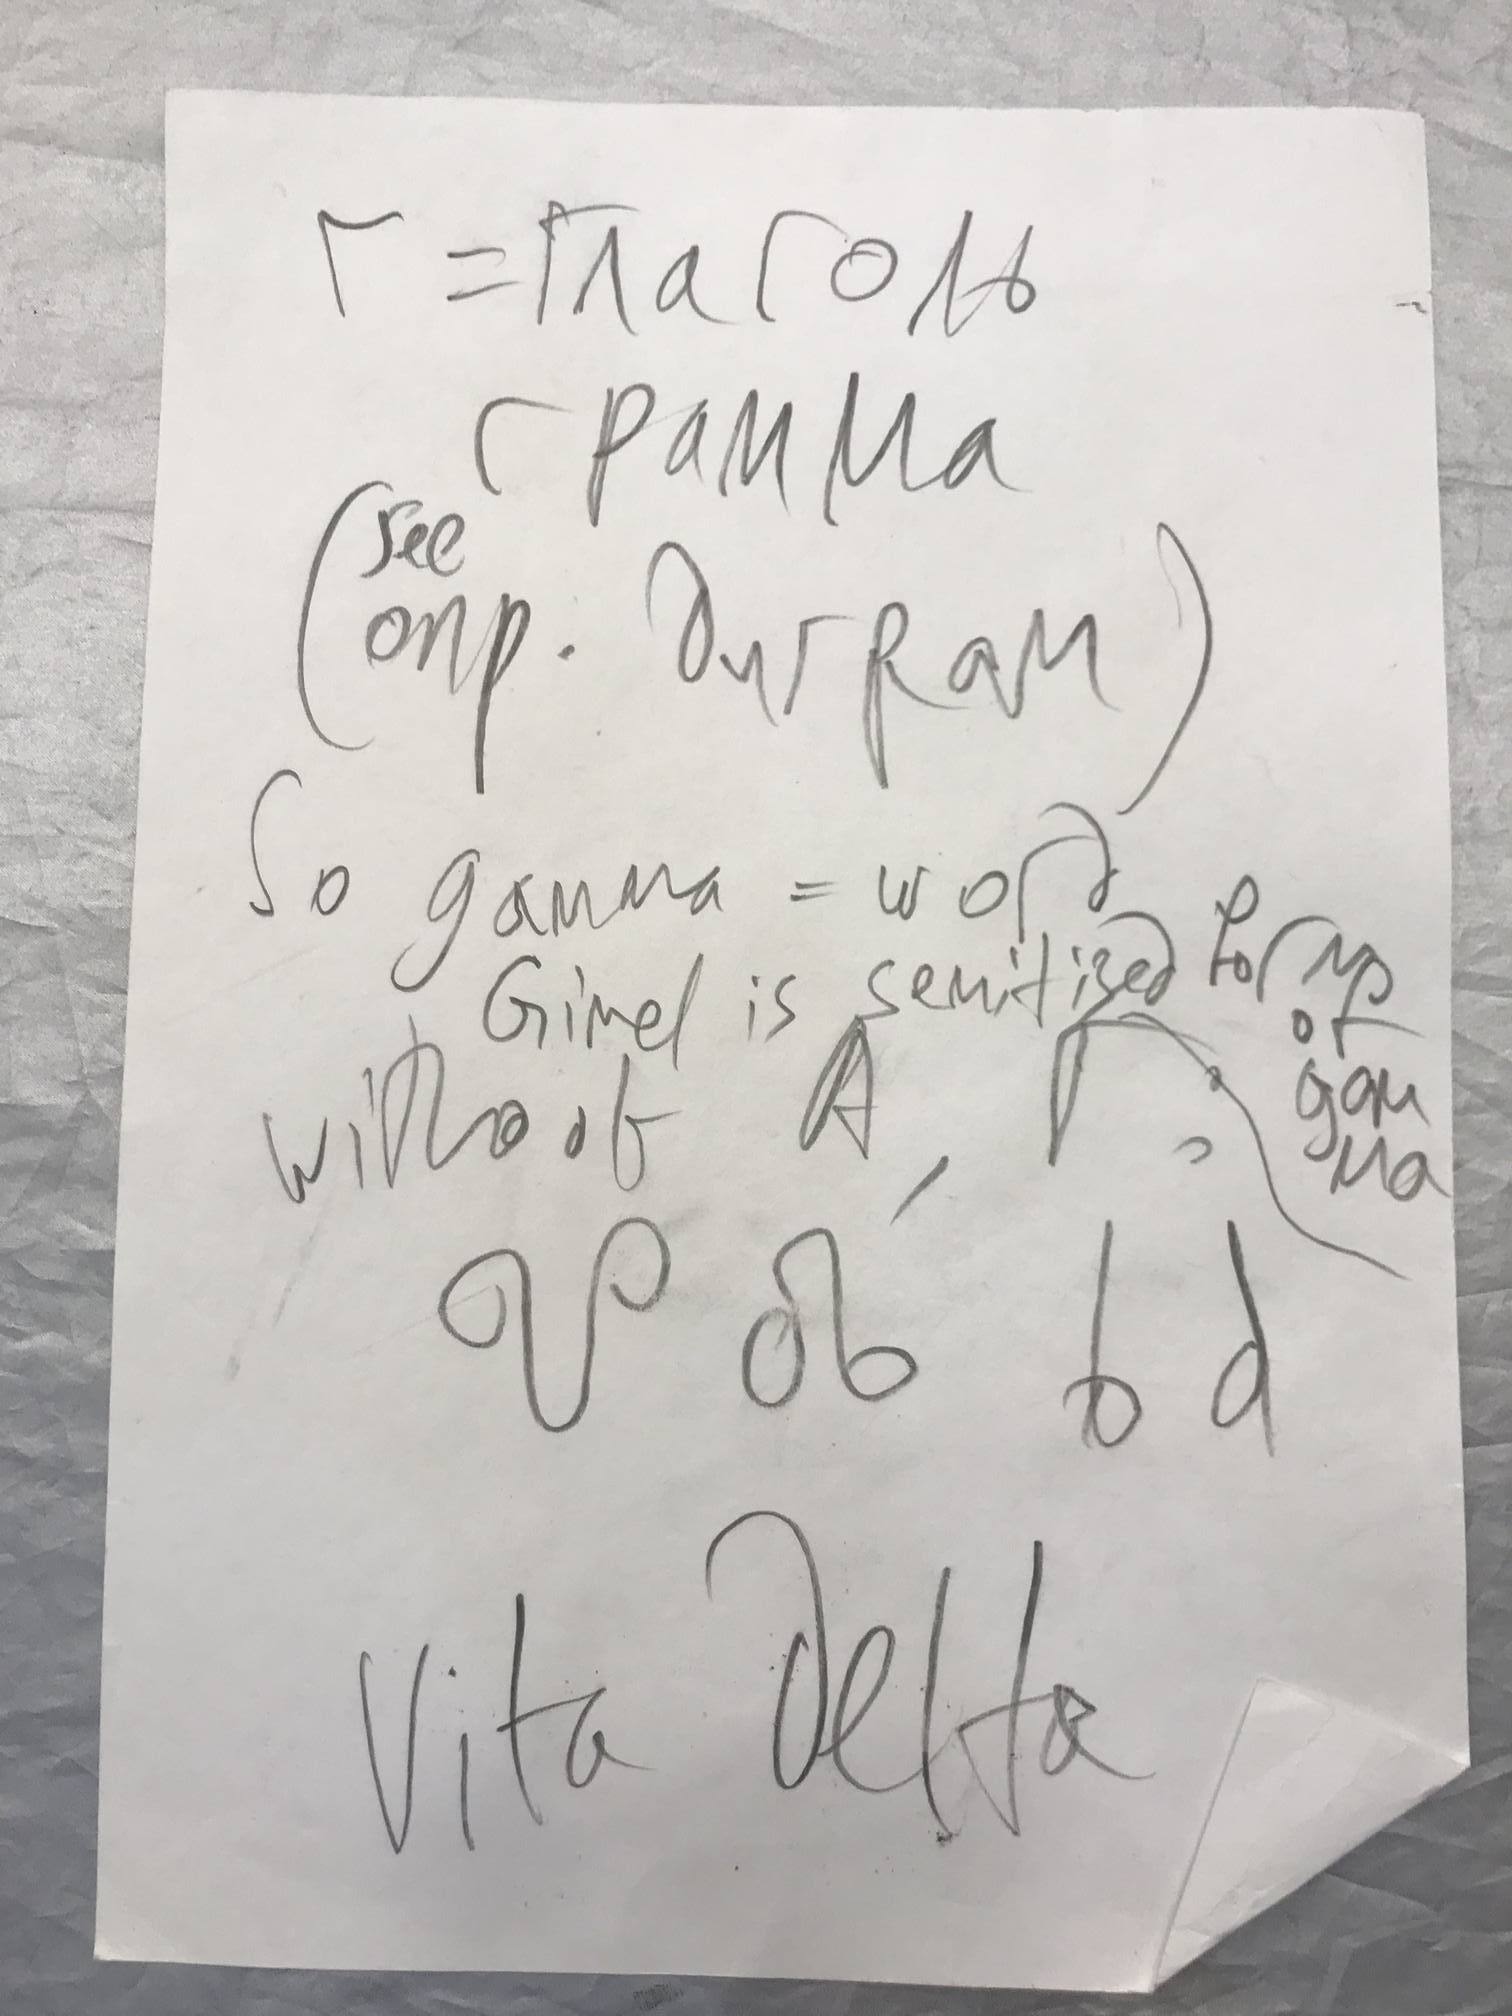 г = глаголь
грамма
(see
опр. диграм)
So gamma = word
Gimel is semitized form
of
gam
ma
without А, Г.
b d
Vita Delta